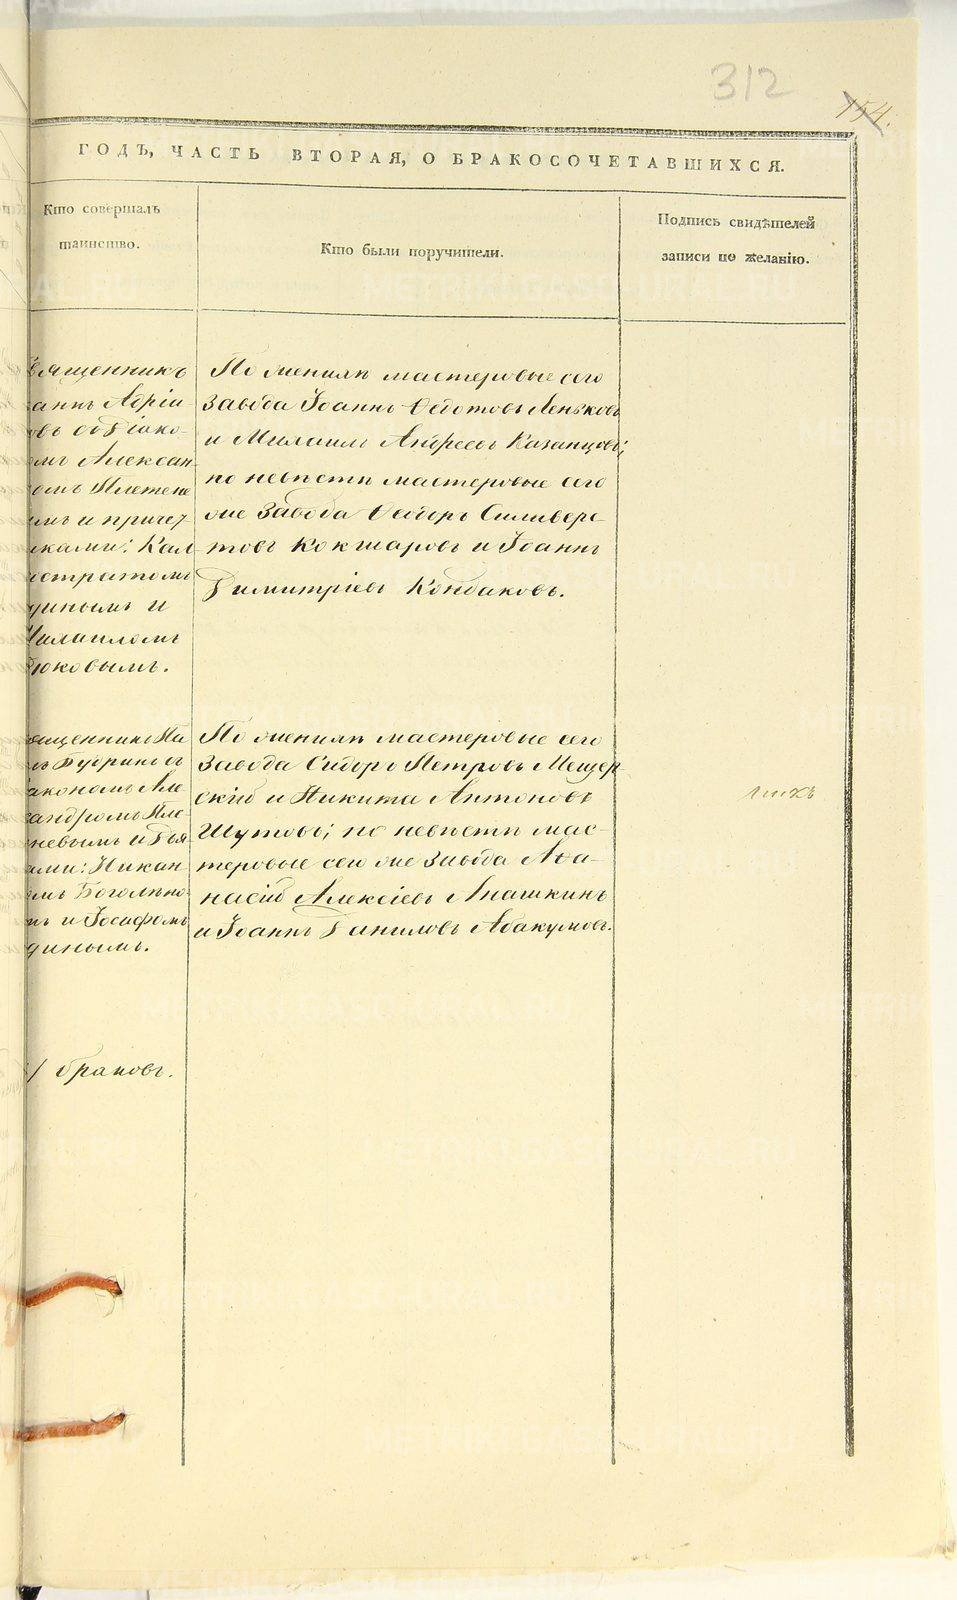 312
154.
ГОДЪ, ЧАСТЬ ВТОРАЯ, О БРАКОСОЧЕТАВШИХСЯ.
Кто совершалъ
таинство.
Кто были поручители.
Подпись свидѣтелей
записи по желанію.
вященникъ
аннъ Адріа
овъ съ Діако-
омъ Алексан-
омъ Плетене
ымъ и причет
иками: Кал-
истратомъ
диным и
Михаиломъ
рюковымъ.
По женихѣ мастеровые сего
завода Іоаннъ Ѳедотовъ Леньковъ
и Михаилъ Андреевъ Казанцовъ;
по невѣсте мастеровые сего
же завода Ѳедоръ Сильверс-
товъ Кокшаровъ и Іоаннъ
Димитріевъ Кондаковъ.
ященникъ Па
лъ Будринъ съ
іакономъ Але
сандромъ Пле
неvымъ и Дья-
ами: Никан
омъ Боголѣпо-
мъ и Іосафомъ
динымъ.
По женихѣ мастеровые сего
завода Сидоръ Петровъ Мещер-
скій и Никита Антоновъ
Шутовъ; по невѣсте мас-
теровые сего же завода Аѳа-
насій Алексіевъ Лпашкинъ
и Іоаннъ Даниловъ Абакумовъ.
браковъ.
METRIKI.GASO-URAL.RU